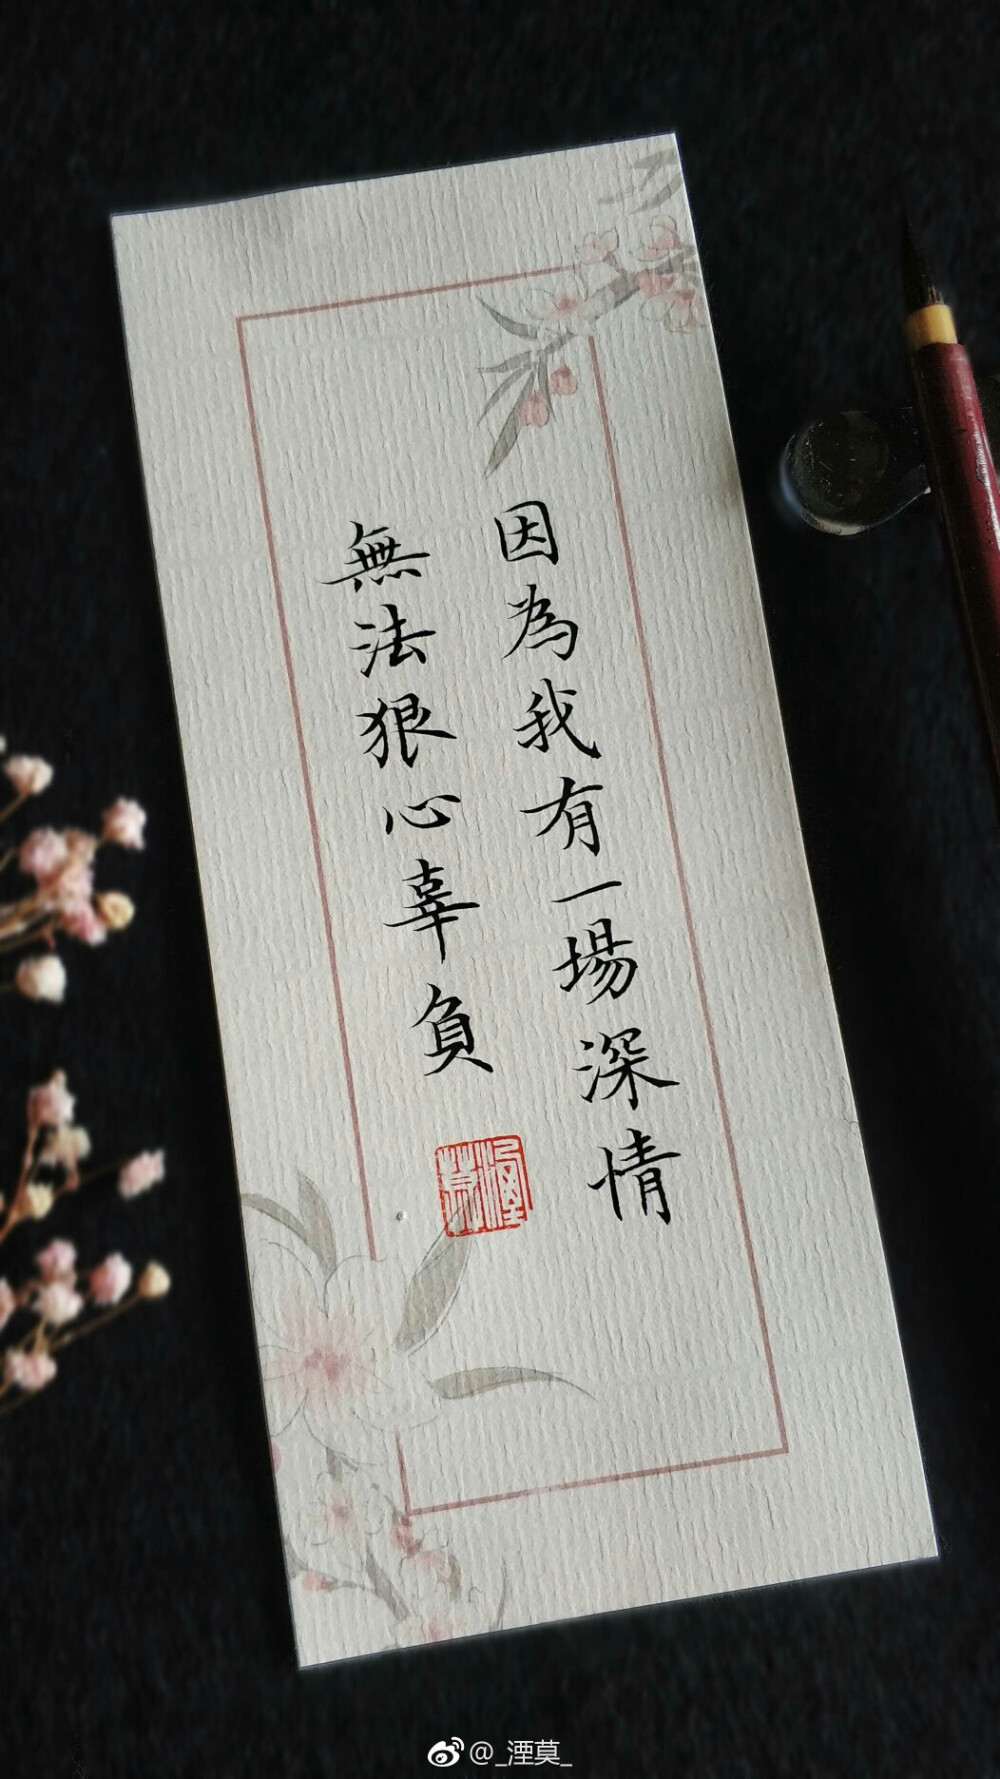 因為我有一場深情
無法狠心辜負
湮莫
@_湮莫_